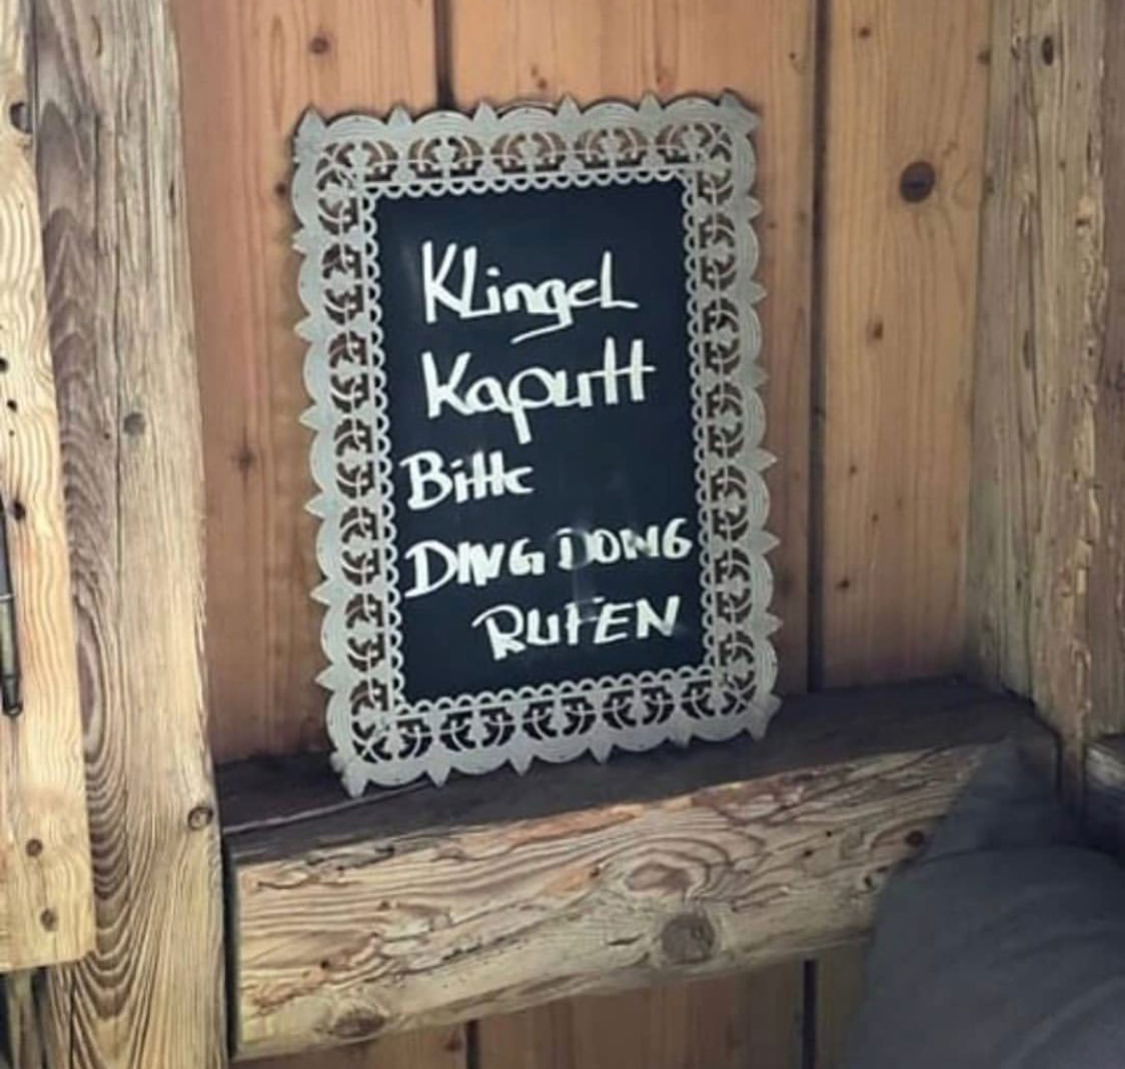 Klingel
Kaputt
Bitte
DING DONG
RUFEN